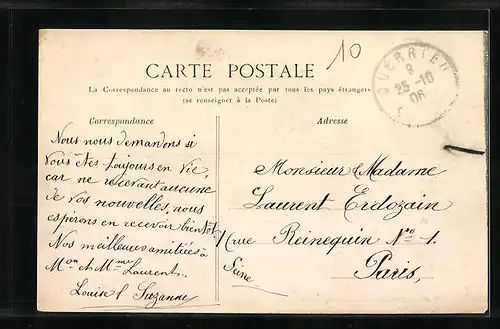 10
CARTE POSTALE
La Correspondance au recto n'est pas acceptée par tous les pays étrangers
(se renseigner à la Poste)
QUERRIEN
8
25-10
06
Correspondance
Nous nous demandons si
vous êtes toujours en vie,
car ne recevant aucune
de vos nouvelles, nous
espérons en recevoir bientôt.
Nos meilleures amitiées à
Mon et Mme Laurent.
Louise Suzanne
Adresse
Monsieur Madame
Laurent Erdozain
rue Reinequin No 1.
Paris,
Seine.